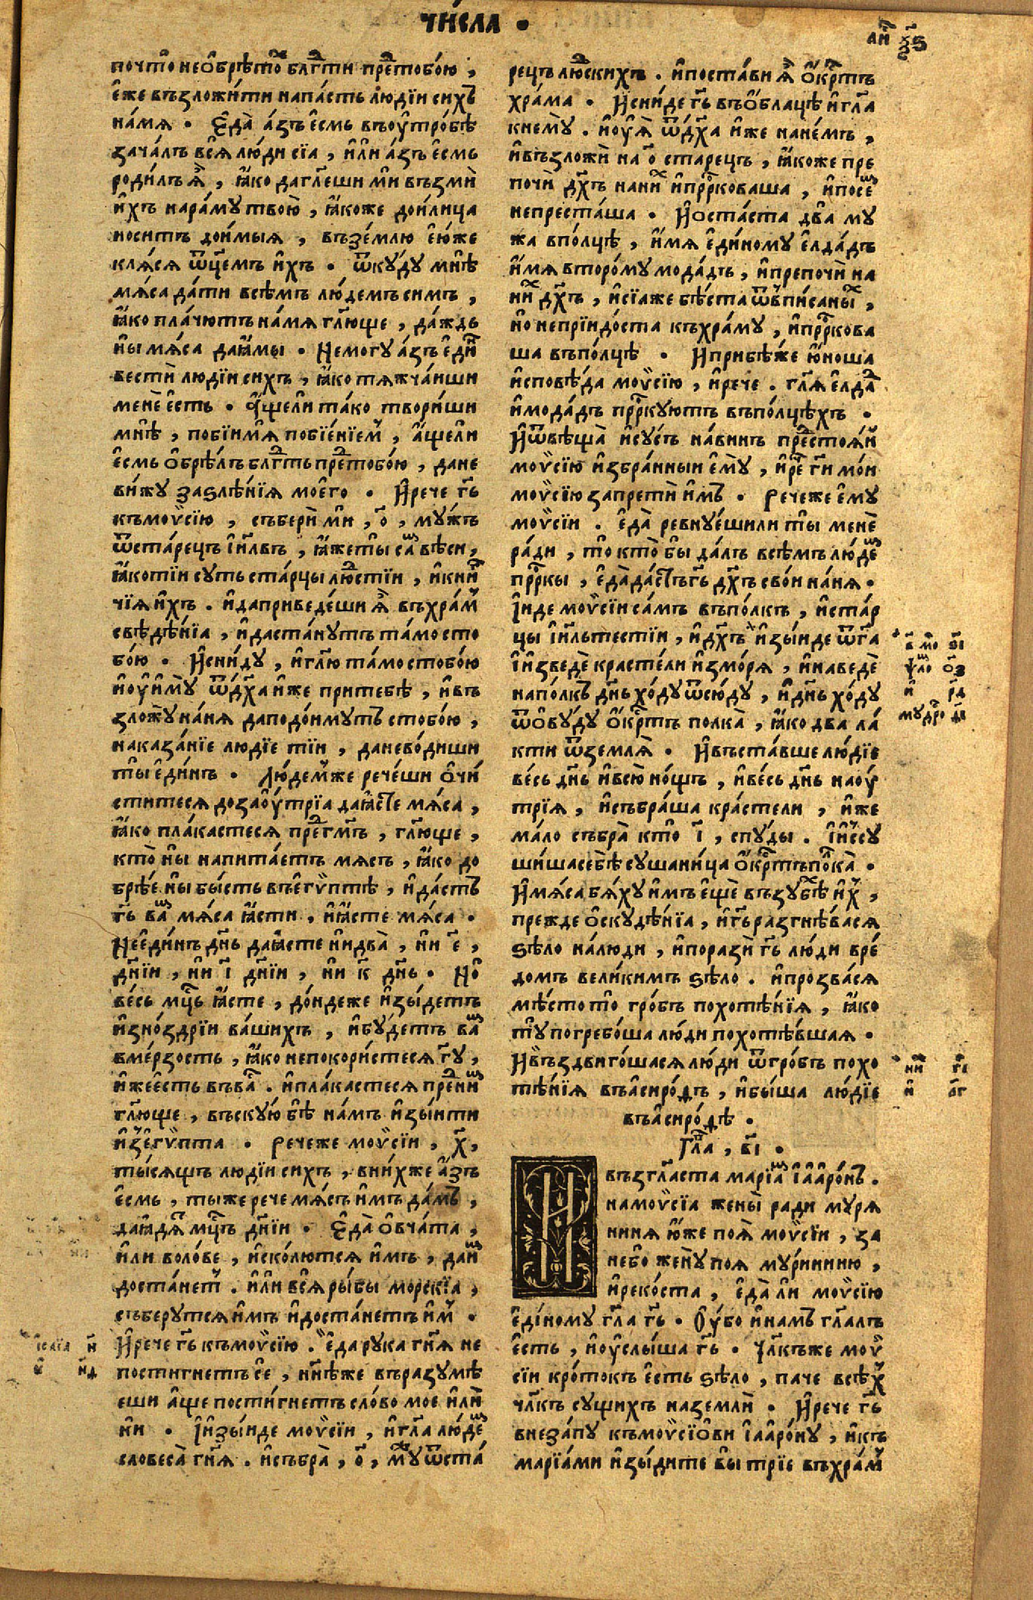 чи́сла .
почто̀ необрѣто́х блг҃ти пред̾тобо́ю ,
є҆же възложи́ти напа́сть лю́дїи сихъ
на́мя . Е҆да̀ а҆зъ є҆смь въоутро́бѣ
зача́лъ вся̀ лю́ди сїа , и҆ли а҆зъ є҆смь
роди́лъ ѧ҆̀ , ꙗ҆́ко да гл҃еши мѝ възмѝ
и҆хъ нара́му твою̀ , ꙗ҆́коже дои́лица
но́ситъ дои́мыя , възе́млю е҆ю́же
кля́ся ѿцє́мъ и҆́хъ . ѿку́ду мнѣ̀
мя́са да́ти всѣ́мъ лю́демъ симъ ,
ꙗ҆́ко пла́чютъ на́мя гл҃юще , да́ждь
ны̀ мя́са да ꙗ҆́мы . Немогу а҆зъ е҆ди́н
вестѝ людїи сихъ , ꙗ҆́ко тяжча́иши
менѐ е҆сть . А҆щели та́ко твори́ши
мнѣ̀ , побїи мя̀ побїе́нїем , а҆́щели
е҆смь о҆брѣ́лъ блг҃ть пред̾тобо́ю , дане
ви́жу заѕлѣ́нїя моего̀ . И҆рече гь҃
къмоѵ̈сїю , съберѝ мѝ , о҃ , му́жъ
ѿста́рецъ і҆и҃лвъ , ꙗ҆́жеты̀ сам вѣ́си ,
ꙗ҆́ко тїи суть ста́рцы лю́стїи , и҆ книг
чїя и҆́хъ . и҆ даприведе́ши ѧ҆̀ въхра́м
свѣдѣ́нїа , и҆ доста́нутъ та́мо сто
бо́ю . И҆сни́ду , и҆ гл҃ю та́мо стобо́ю
и҆ оуи҆му̀ ѿдх҃а и҆́же при тебѣ̀ , и҆ въ
зложу̀ на́ня даподо́имутъ стобо́ю ,
наказа́нїе людїе тїи , да не бо́диши
ты̀ е҆ди́нъ . Лю́демже рече́ши о҆чи́
ститеся до заоу́трїа да ꙗ҆сте мя́са ,
ꙗ҆́ко пла́кастеся пре́дгмъ , гл҃юще ,
кто̀ ны̀ напита́етъ мя́съ , ꙗ҆́ко до
брѣ́е ны̀ бы́сть въегѵ́птѣ , и҆ да́стъ
гь҃ вам мя́са ꙗ҆́сти , и҆ ꙗ҆сте мя́са .
Не е҆ди́нъ дн҃ь да ꙗ҆́сте ни два̀ , нѝ е҃ ,
дн҃їи , нѝ і҃ дн҃їи , нѝ к҃ дн҃ь . Но̀
ве́сь мц҃ь ꙗ҆́сте , до́ндеже и҆зы́детъ
и҆зно́здрїи ва́шихъ , и҆бу́детъ вам
вме́рзость , ꙗ҆́ко непокори́стеся гу҃ ,
и҆́же е҆сть въвас . и҆пла́кастеся пред ним
гл҃юще , въскую̀ бѣ̀ на́мъ и҆зы́ити
и҆зъегѵ́пта . Рече́же моѵ̈сїи , х҃ ,
ты́сящъ лю́дїи си́хъ , вни́хже а҆́зъ
е҆смь , ты́ же рече мя́съ и҆мъ да́мъ ,
да ꙗ҆дят мц҃ъ дн҃їи . Е҆да̀ о҆вча́та ,
и҆́ли воло́ве , и҆ско́лются и҆мъ , да им
доста́нет . и҆́ли вся̀ ры́бы морскїа ,
съберу́тся и҆мъ и҆ доста́нетъ и҆м .
И҆рече гь҃ къмоѵ̈сїю . е҆да рука гн҃я не
пости́гнетъ сѐ , нн҃ѣже въразумѣ̀
еши а҆ще пости́гнетъ сло́во мое и҆ли
ни . И҆ изы́иде моѵ̈сїи , и҆ гл҃а лю́дем
словеса̀ гн҃я . и҆събра̀ , о҃ , муж ѿста́
рецъ лю́скихъ . и҆поста́ви ѧ҆̀ о҆́крстъ
хра́ма . И҆сни́де гь҃ въо҆́блацѣ и҆ гл҃а
кнему̀ . и҆ оуя̀ ѿдх҃а и҆́же нане́мъ ,
и҆възложѝ на о҃ ста́рецъ , ꙗ҆́коже пре
почѝ дх҃ъ на них и҆прр҃коваша , и҆посем
непреста́ша . И҆оста́ста два̀ му
жа впо́лцѣ , и҆́мя е҆ди́ному е҆лда́дъ
и҆́мя второ́му мода́дъ , и҆препочѝ на
них дх҃ъ , и҆ сїи же бѣ́ста ѿвписаных ,
но̀ непрїидо́ста къхра́му , и҆прр҃кова
ша въпо́лцѣ . И҆прибѣ́же ю҆́ноша
и҆сповѣ́да моѵ̈сїю , и҆рече . гл҃я е҆лда́д
и҆ мода́дъ прр҃куютъ въпо́лцѣхъ .
И҆ѿвѣща̀ и҆су́съ на́винъ пред̾стоя́и
моѵ̈сїю и҆збра́нныи е҆му̀ , и҆ре҃ ги҃ мо́и
моѵ̈сїю запретѝ и҆мъ . Рече́же е҆му
моѵ̈сїи . е҆да̀ ревнуе́шили ты̀ менѐ
ра́ди , то̀ кто̀ бы̀ да́лъ всѣ́мъ лю́дем
прр҃кы , е҆да̀ да́стъ гь҃ дх҃ъ сво́и на́ня .
І҆иде моѵ̈сїи са́мъ въпо́лкъ , и҆ста́р
цы і҆и҃льтестїи , и҆дх҃ъ и҆зы́иде ѿга҃
і҆изведѐ красте́ли и҆змо́ря , и҆наведѐ
напо́лкъ дн҃ь хо́ду ѿсю́ду , и҆ дн҃ь хо́ду
ѿо҆ву́ду о҆́крстъ полка̀ , ꙗ҆́ко два ла́
кти ѿземля̀ . И҆въста́вше лю́дїе
ве́сь дн҃ь и҆всю̀ но́щъ , и҆ве́сь дн҃ь наоу́
трїя , и҆събра́ша кра́стели , и҆же
ма́ло събра̀ кто̀ і҃ , спу́ды . І҆ису
ши́ша себѣ̀ сушани́ца о҆́крстъ по́лка .
И҆мяса бя́ху и҆мъ е҆щѐ възубѣ́хъ и҆х ,
прежде о҆скудѣ́нїа , и҆гь҃ разгнѣ́вася
ѕѣло на́люди , и҆поразѝ гь҃ лю́ди вре́
домъ вели́кимъ ѕѣло . и҆прозва́ся
мѣ́сто то̀ гробъ похотѣ́нїя , ꙗ҆́ко
ту̀ погребо́ша лю́ди похотѣ́вшая .
И҆въздвиго́шася лю́ди ѿгробъ похо
тѣ́нїя въасиро́ѳъ , и҆бы́ша лю́дїе
въасиро́ѳѣ .
Гла҃ , в҃і .
И҆ възгл҃аста марїа́м і҆ а҆аро́нъ .
намоѵ̈сїа жены̀ ра́ди муря
ниня ю҆́же поя̀ моѵ̈сїи , за
не́бо жену̀ поя мури́нинию ,
и҆реко́ста , е҆да̀ ли моѵ̈сїю
е҆ди́ному гл҃а гь҃ . Оу҆́бо и҆на́мъ гл҃алъ
е҆сть , и҆ оуслы́ша гь҃ . Чл҃къже моѵ̈
сїи кро́токъ е҆сть ѕѣло , па́че всѣ́х
чл҃къ су́щихъ наземлѝ . И҆рече гь҃
внеза́пу къмоѵ̈сїови і҆ а҆аро́ну , и҆къ
марїа́ми и҆зы́дите вы̀ трїе въхра́м